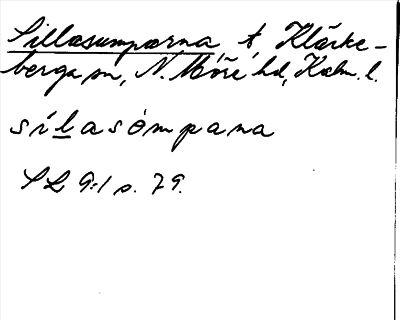 Sillasumparna t, Kläcke-
berga sn, N. Möre hd, Kalm. l.
sílasòmpana
SL 9:1 s. 79.